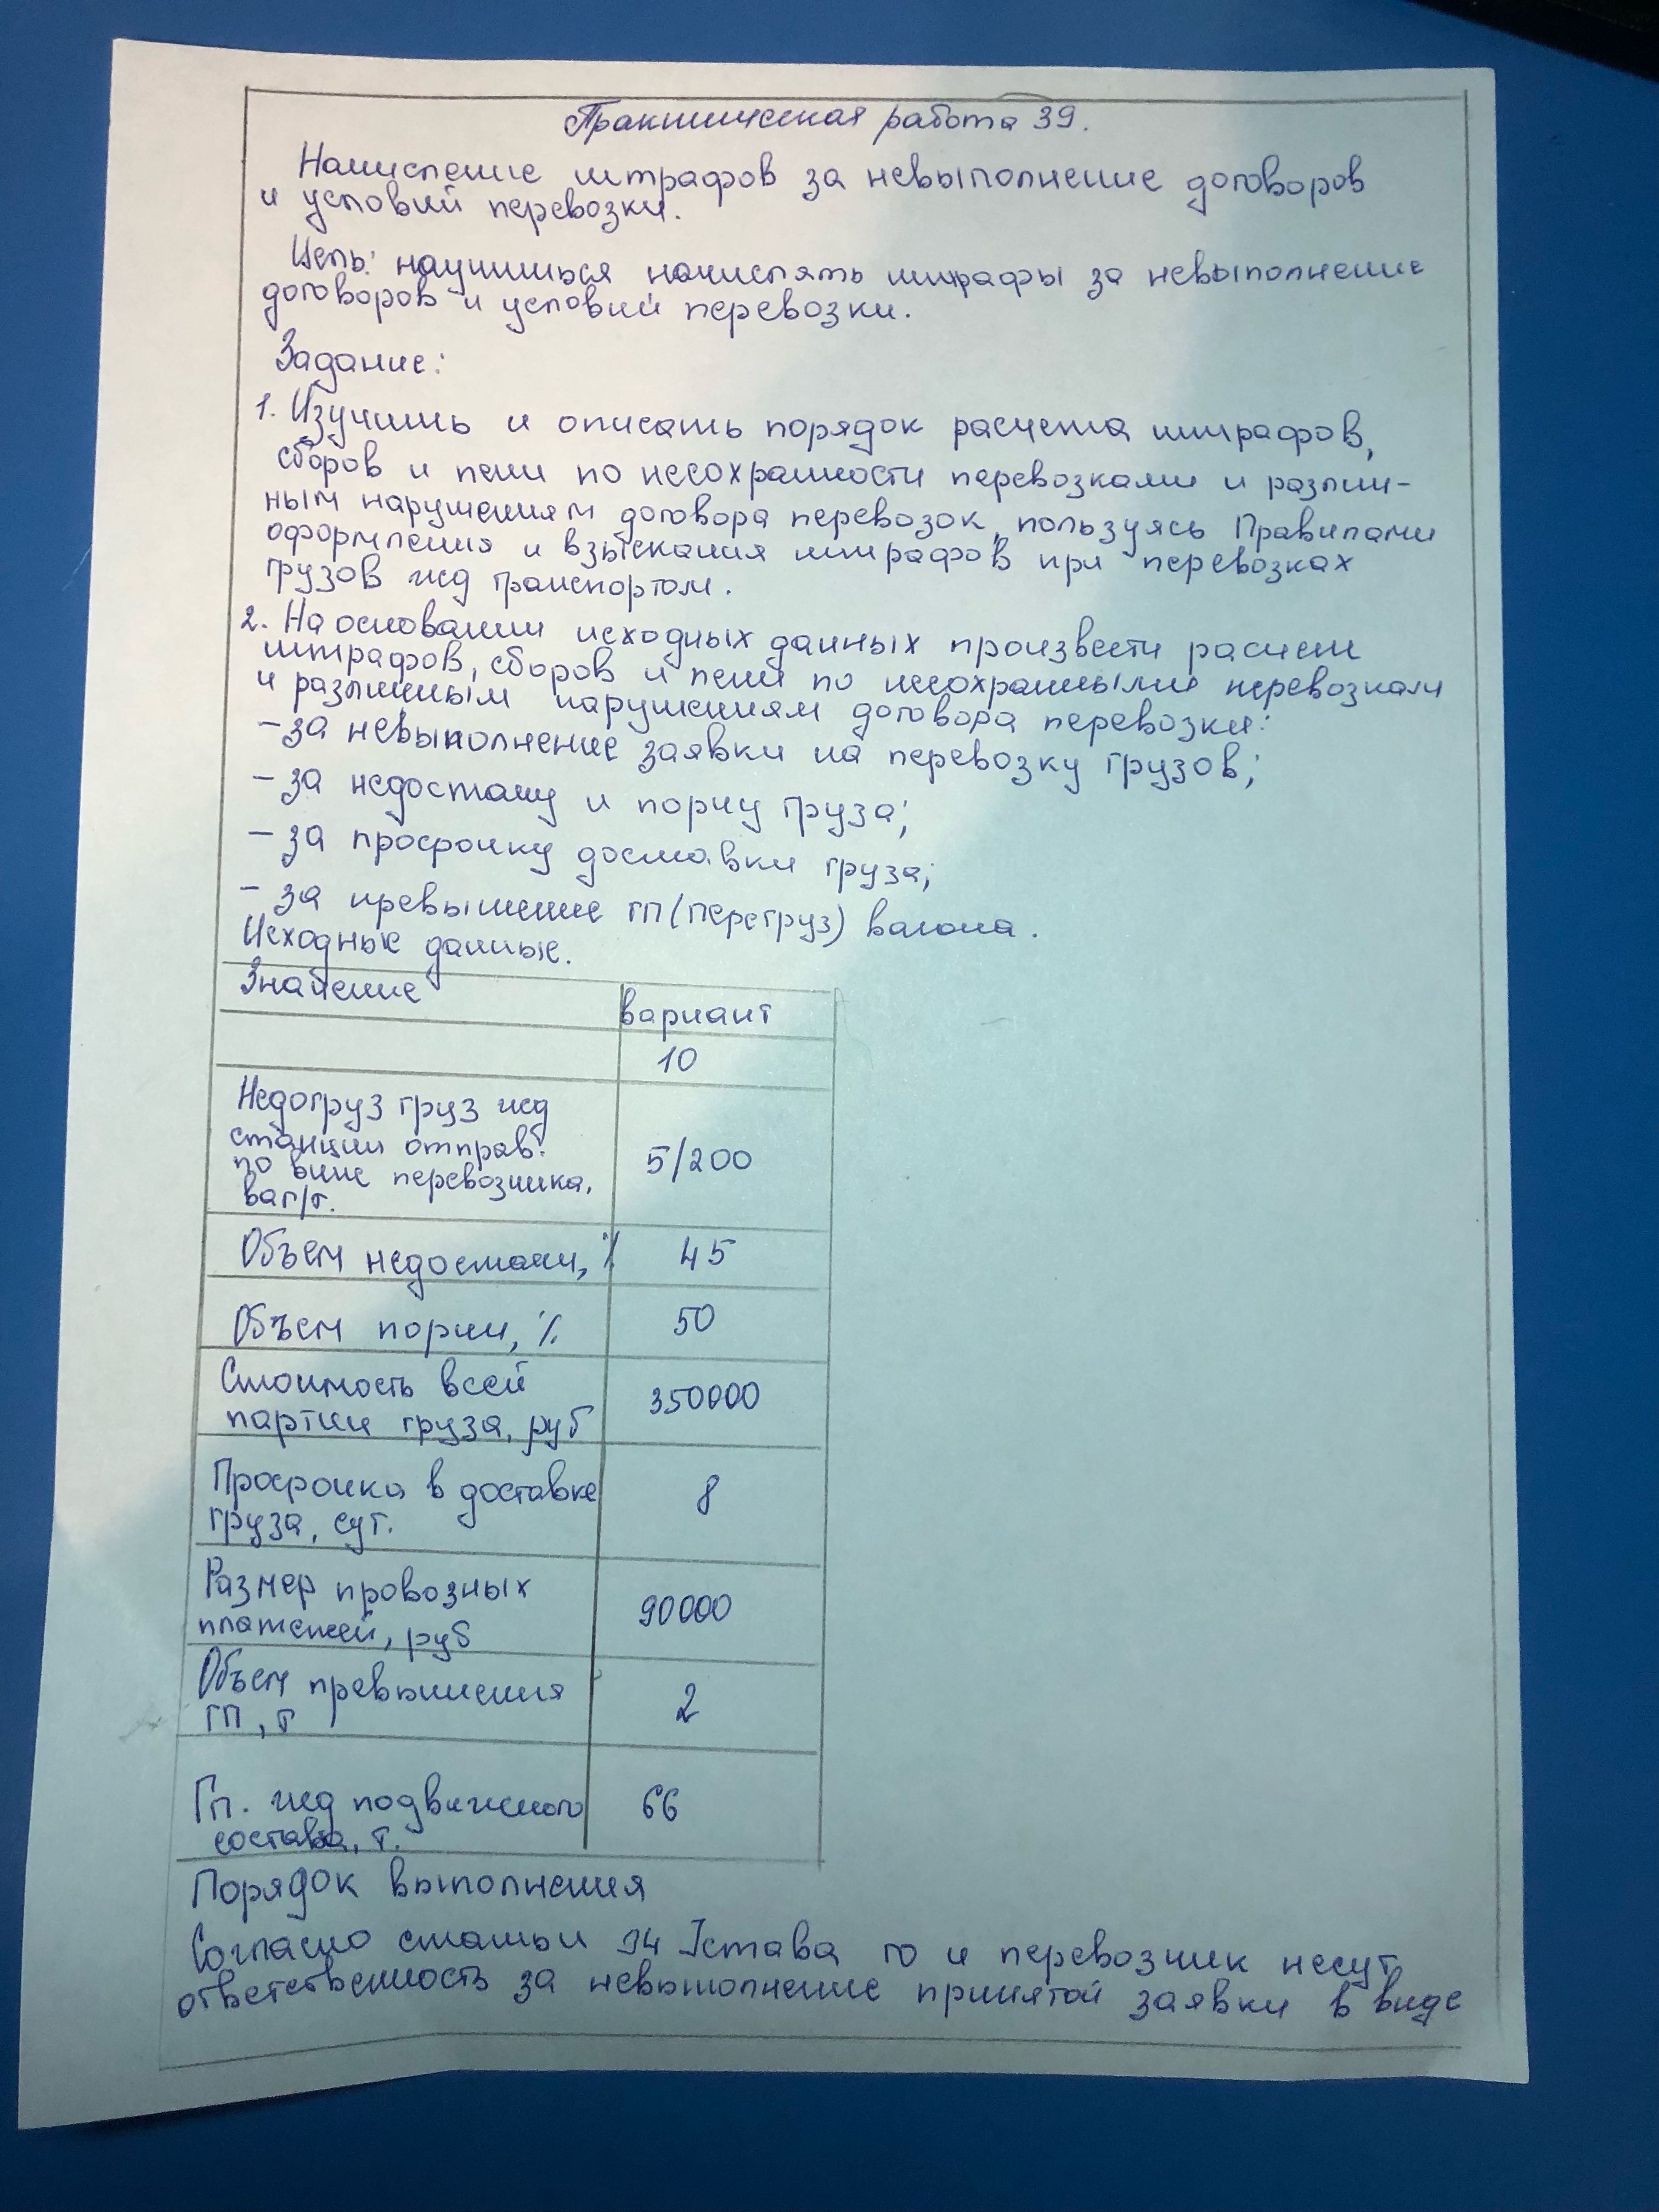 Практическая работа 39.
Начисление штрафов за невыполнение договоров
и условий перевозки.
Цель: научиться начислять штрафы за невыполнение
договоров и условий перевозки.
Задание:
1. Изучить и описать порядок расчета штрафов,
сборов и пени по несохранности перевозками и различ-
ным нарушениям договора перевозок, пользуясь Правилами
оформления и взыскания штрафов при перевозках
грузов жд транспортом.
2. На основании исходных данных произвести расчет
штрафов, сборов и пени по несохранными перевозкам
и различным нарушениям договора перевозки:
- за невыполнение заявки на перевозку грузов;
- за недостачу и порчу груза;
- за просрочку доставки груза;
- за превышение гп (перегруз) вагона.
Исходные данные.
Значение
вариант
10
Недогруз груз жд
станции отправ.
по вине перевозчика,
ваг/т.
5/200
Объем недостачи, %
45
Объем порчи, %
50
Стоимость всей
партии груза, руб
350000
Просрочка в доставке
груза, сут.
8
Размер провозных
платежей, руб
90000
Объем превышения
ГП, т
2
Гп. жд подвижного
состава, т.
66
Порядок выполнения
Согласно статьи 94 Устава го и перевозчик несут
ответственность за невыполнение принятой заявки в виде